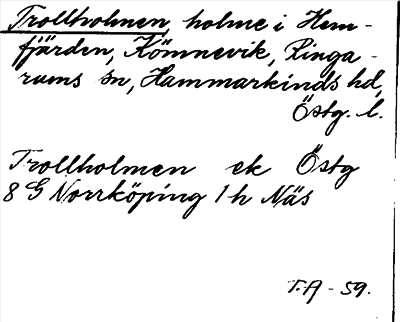 Trollholmen, holme i Hem-
fjärden, Kömnevik, Ringa-
rums sn, Hammarkinds hd,
Östg. l.
Trollholmen ek Östg
8 G Norrköping 1 h Näs
T.A - 59.